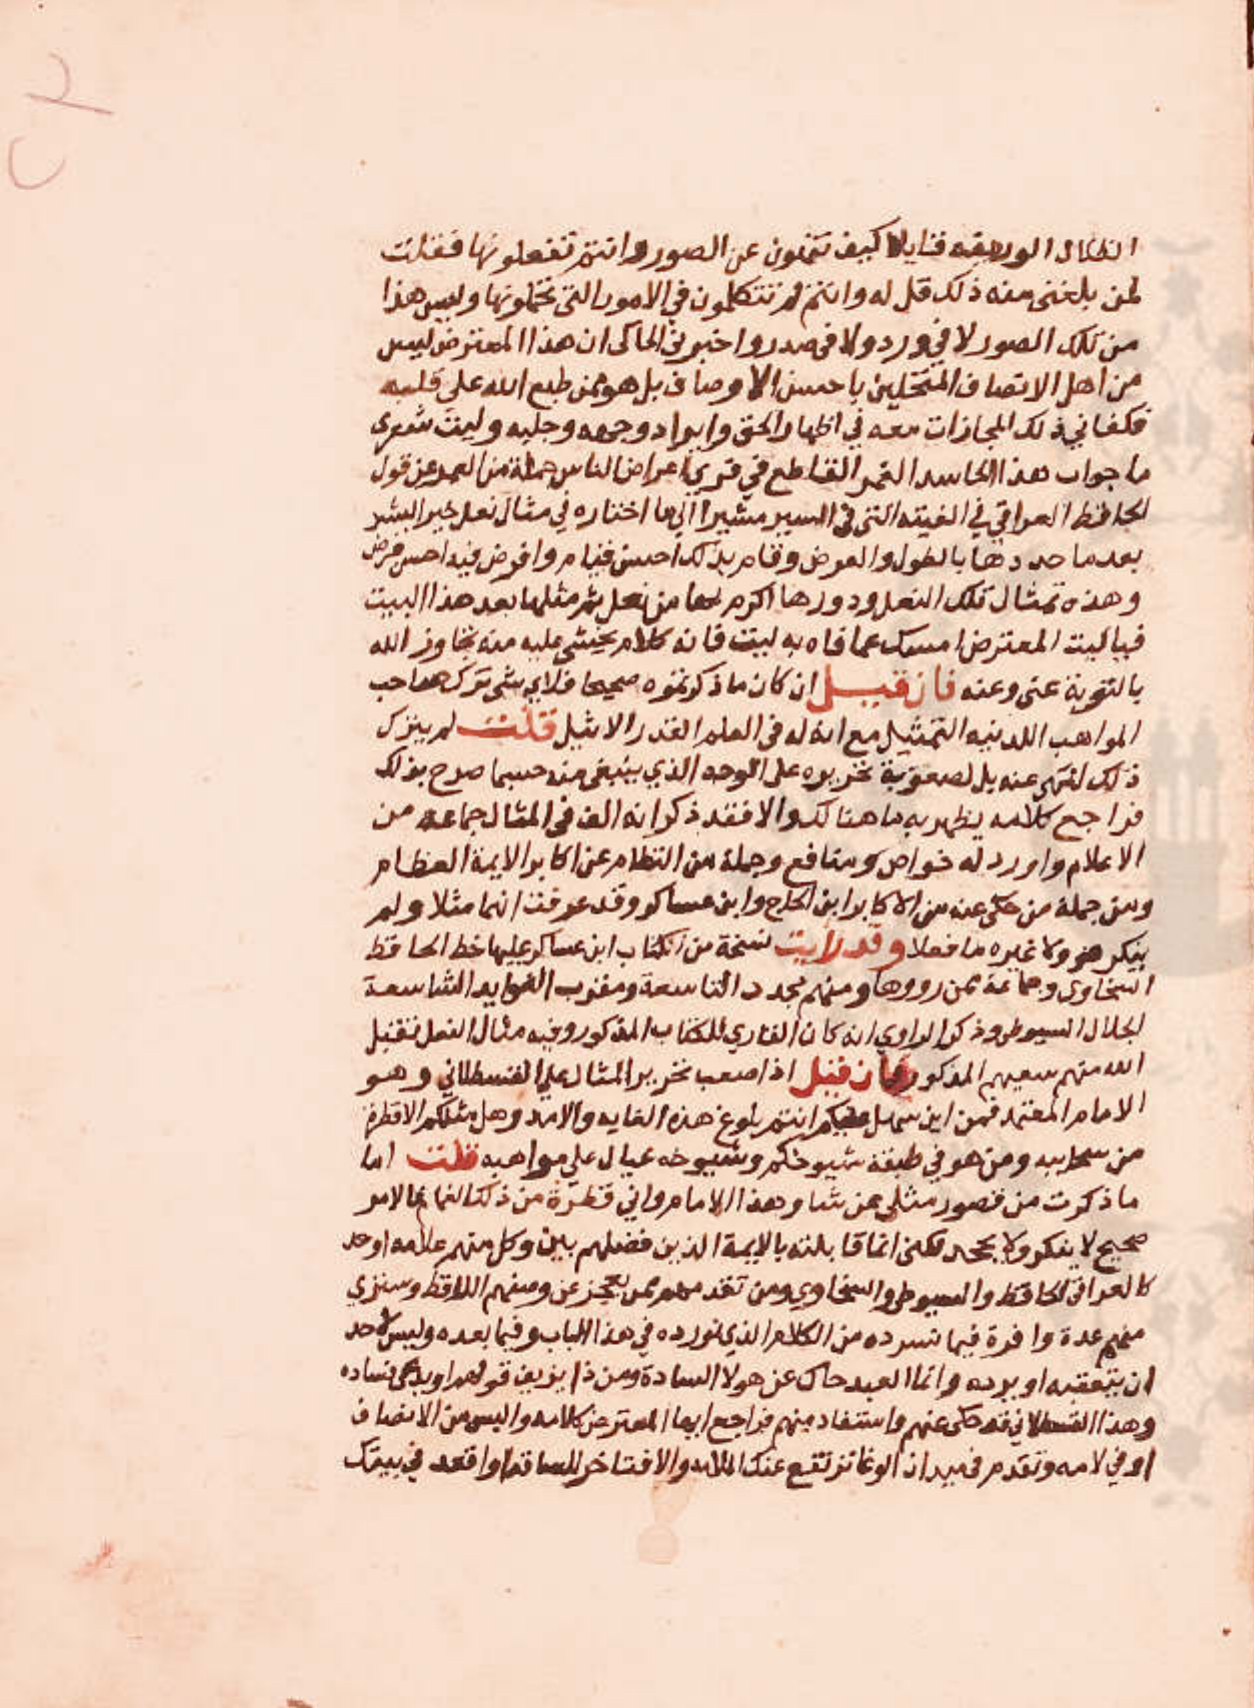 الظلال الوريقه قايلا كيف تنهون عن الصور وانتم تفعلونها فقلت
لمن بلغني منه ذلك قل له وانتم لم تتكلمون في الامور التي تجهلونها وليس هذا
من تلك الصور لا في ورد ولا في صدر واخبرني الحاكي ان هذا المعترض ليس
من اهل الانصاف المتحلين باحسن الاوصاف بل هو ممن طبع الله على قلبه
فكفاني ذلك المجازات معه في اظهار الحق وايراد وجهه وجلبه وليت شعري
ما جواب هذا الحاسد الغمر القاطع في فري اعراض الناس جملة من العمر عن قول
الحافظ العراقي في الفيته التي في السير مشيرا الي ما اختاره في مثال نعل خير البشر
بعد ما حددها بالطول والعرض وقام بذلك احسن قيام وافرض فيه احسن فرض
وهذه تمثال تلك النعل ودورها اكرم بها من نعل ثم مثلها بعد هذا البيت
فياليت المعترض امسك عما فاه به ليت فانه كلام يخشي عليه منه تجاوز الله
بالتوبة عني وعنه فان قيل ان كان ما ذكرتموه صحيحا فلاي شي ترك صاحب
المواهب اللدنيه التمثيل مع انه له في العلم القدر الاثيل قلت لم يترك
ذلك لنهي عنه بل لصعوبة تحريره على الوجه الذي ينبغي منه حسبما صرح بذلك
فراجع كلامه يظهر به ما هنالك والا فقد ذكر انه الف في المثال جماعه من
الاعلام واورد له خواص ومنافع وجملة من النظام عن اكابر الايمة العظام
ومن جملة من حكي عنه من الاكابر ابن الحاج وابن عساكر وقد عرفت انهما مثلا ولم
ينكر هو ولا غيره ما فعلا وقد رايت نسخة من كتاب ابن عساكر عليها خط الحافظ
السخاوي وجماعة ممن رووها ومنهم مجدد التاسعة ومقرب الفوايد الشاسعة
الجلال السيوطي وذكر الراوي انه كان القاري للكتاب المذكور وفيه مثال النعل تقبل
الله منهم سعيهم المذكور فان قيل اذا صعب تحرير المثال علي القسطلاني وهو
الامام المعتمد فمن اين سهل عليكم انتم بلوغ هذه الغايه والامد وهل مثلكم الا قطرة
من سحايبه ومن هو في طبقة شيوخكم وشيوخه عيال علي مواهبه قلت اما
ما ذكرت من قصور مثلي عن شاو هذا الامام واني قطرة من ذلك الغمام فالامر
صحيح لا ينكر ولا يجحد لكني انما قابلته بالايمة الذين فضلهم بين وكل منهم علامه اوحد
كالعراقي الحافظ والسيوطي والسخاوي ومن تقدمهم ممن يعجز عن وصفهم اللافظ وستري
منهم عدة وافرة فيما نسرده من الكلام الذي نورده في هذا الباب وفيما بعده وليس لاحد
ان يتعقبه او يرده وانما العبد حاك عن هولا السادة ومن ذا يزيف قولهم او يدعي فساده
وهذا القسطلاني قد حكي عنهم واستفاد منهم فراجع ايها المعترض كلامه والبس من الانصاف
اوفي لامه وتقدم في ميدان الوغا ترتفع عنك الملامه والا فتاخر للساقة واقعد في بيتك